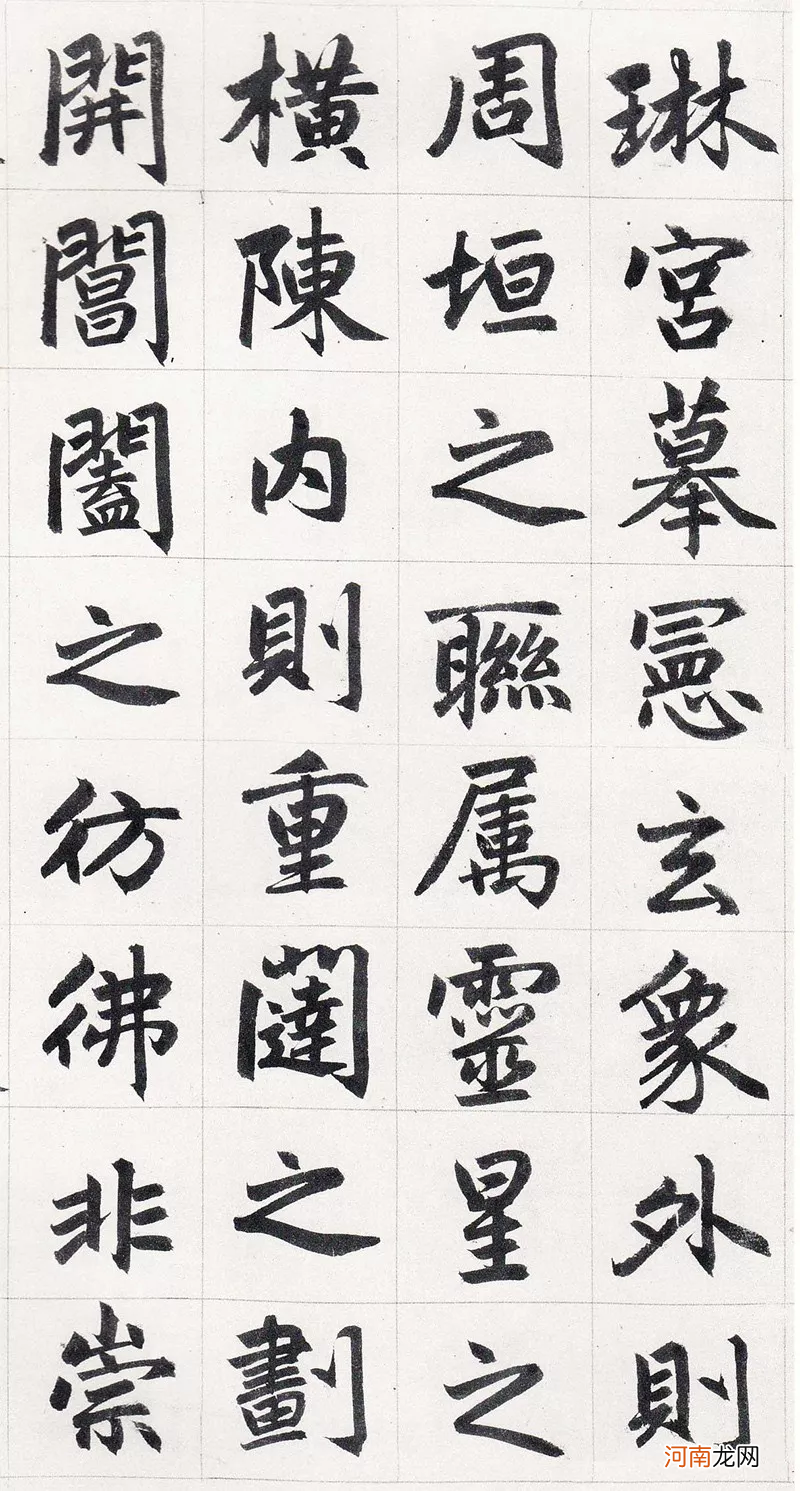 琳宮摹憲玄象外則
周垣之聯属靈星之
橫陳内則重闥之劃
開閶闔之彷彿非崇
河南龙网